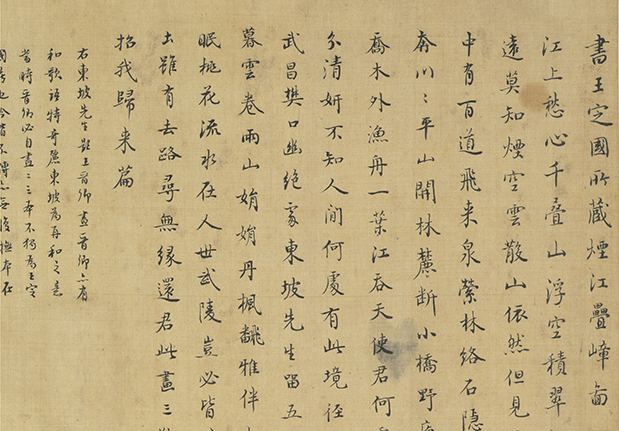 書王定國所藏煙江疊嶂圖
江上愁心千叠山浮空積翠
遠莫知煙空雲散山依然但見
中有百道飛來泉縈林絡石隱
奔川〻平山開林麓斷小橋野店
喬木外漁舟一葉江吞天使君何
分清妍不知人間何處有此境徑
武昌樊口幽絕處東坡先生留五
暮雲卷雨山娟娟丹楓飜雅伴
眠桃花流水在人世武陵豈必皆
土雖有去路尋無緣還君此畫三
招我歸來篇
右東坡先生題王晉卿畫晉卿亦有
和歌語特奇麗東坡為再和之意
當時晉卿必自畫二三本不獨為王定
也今皆不傳亦無後橅本在